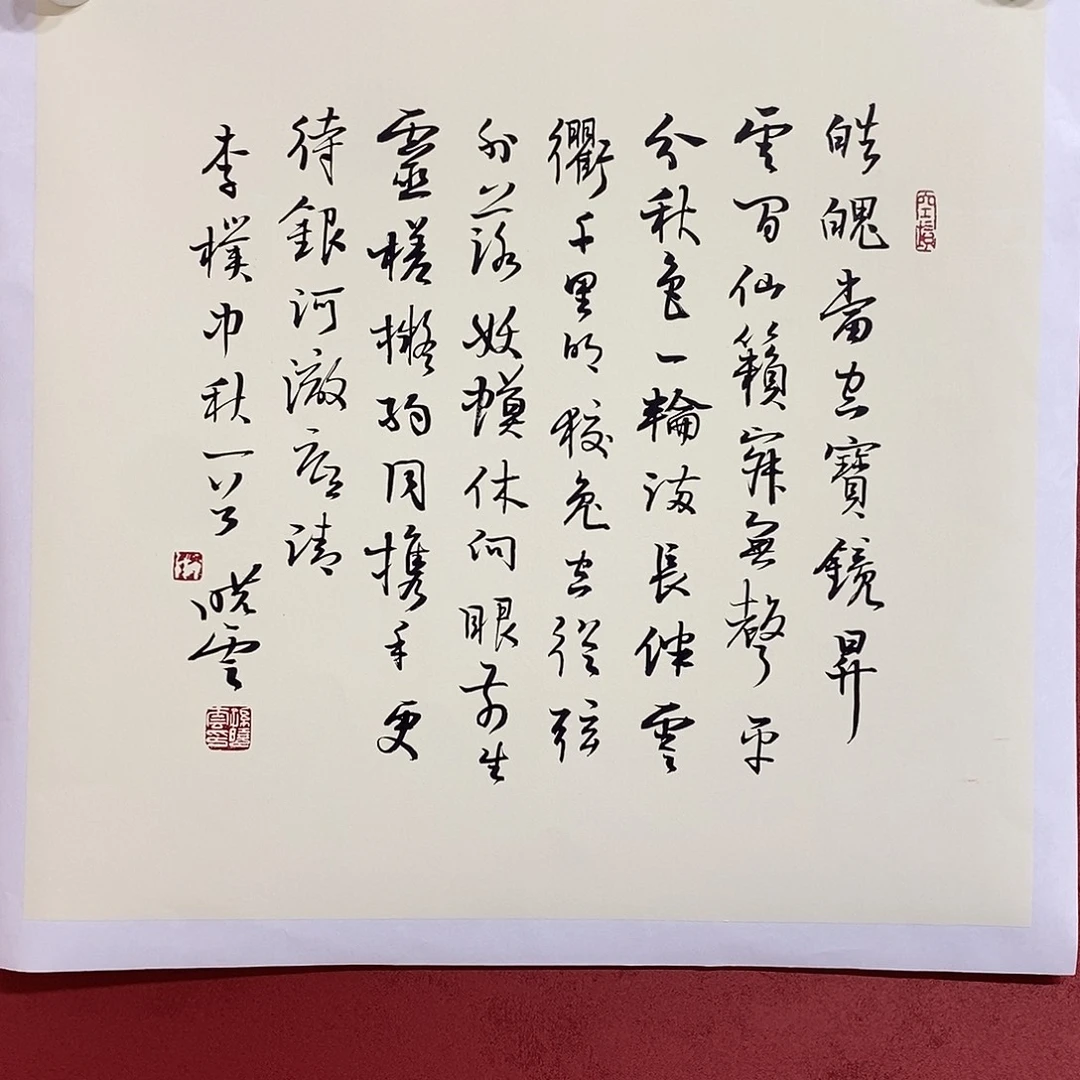 皓魄當空寶鏡昇
雲間仙籟寂無聲平
分秋色一輪滿長伴雲
衢千里明狡兔空從弦
外落妖蟆休向眼前生
靈槎擬約同攜手更
待銀河澈底清
李樸中秋一首 曉雲
孫曉雲印